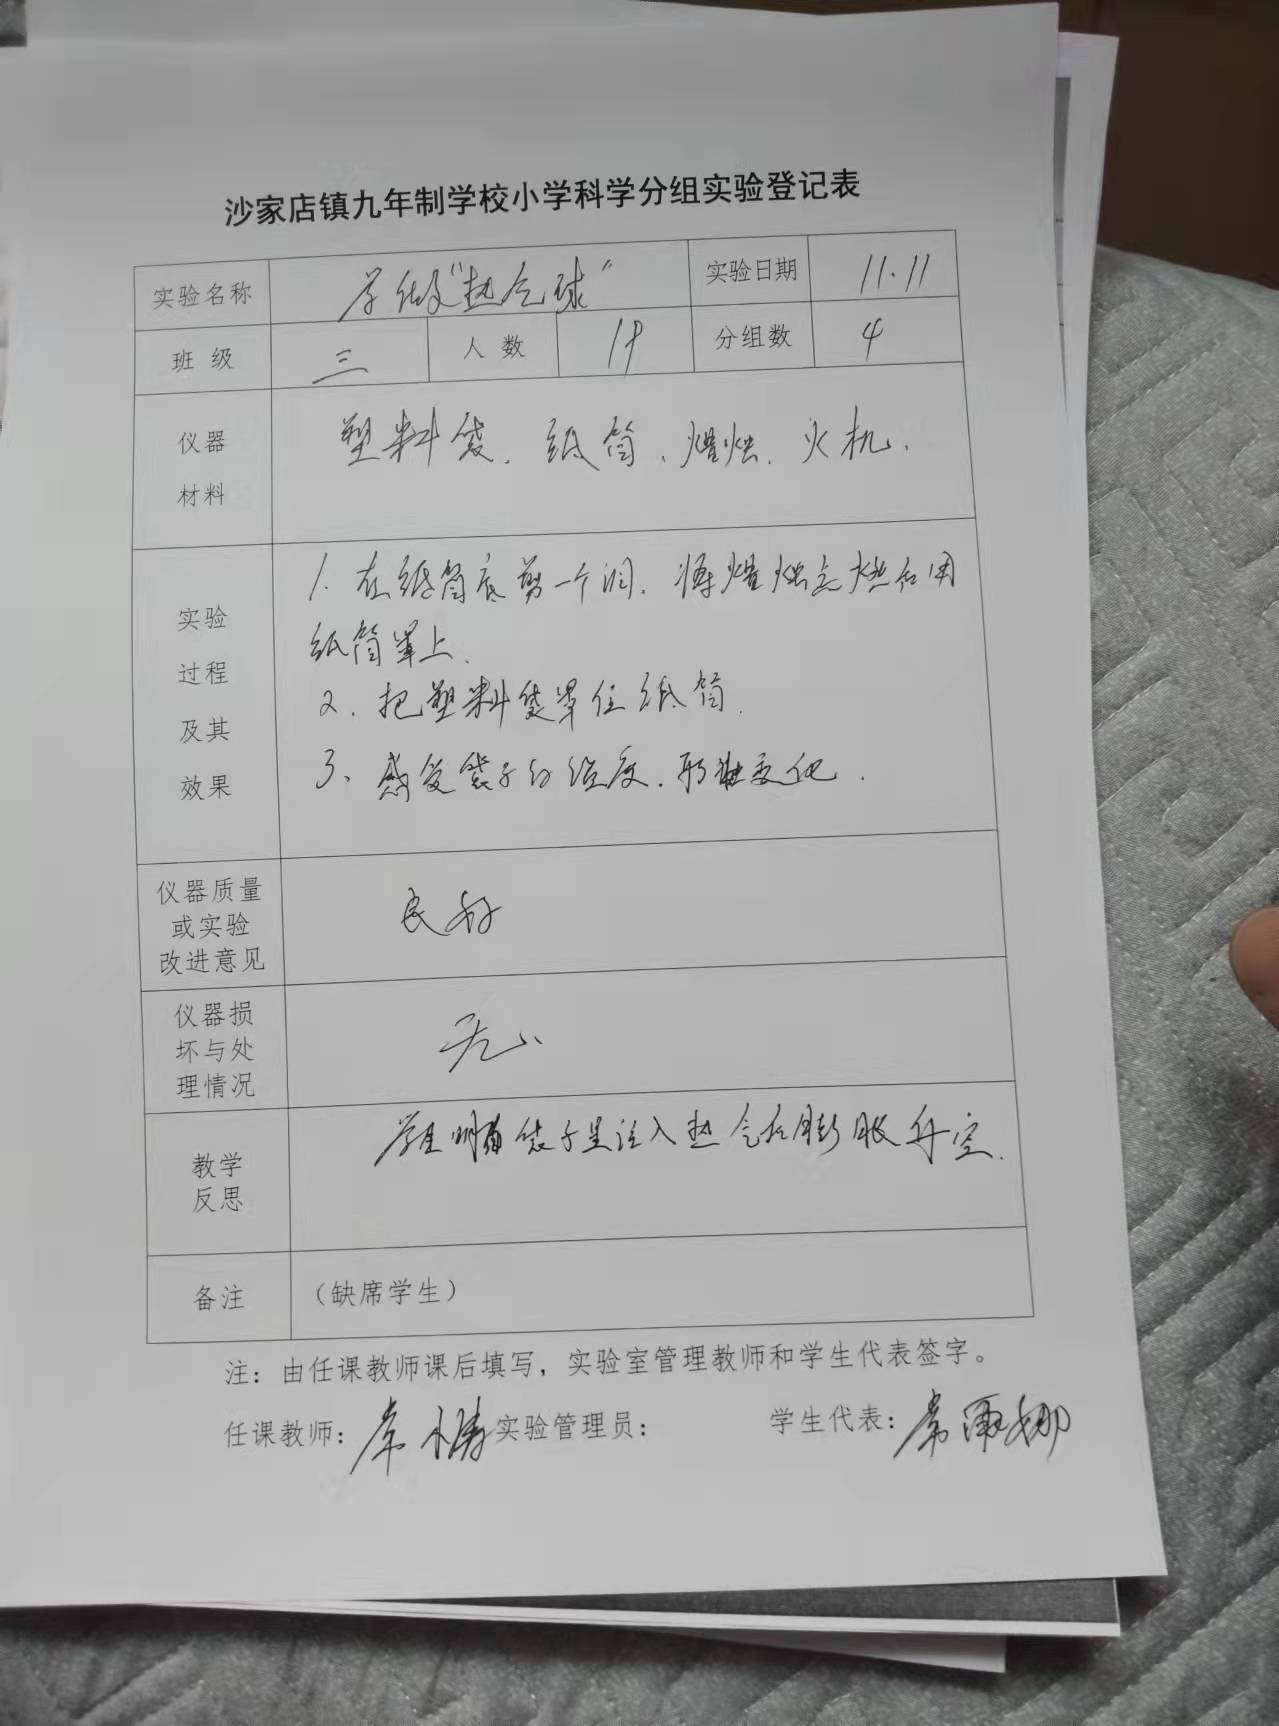 沙家店镇九年制学校小学科学分组实验登记表
实验名称 学做"热气球" 实验日期 11.11
班级 三 人数 19 分组数 4
仪器
材料
塑料袋、纸筒、蜡烛、火机.
实验
过程
及其
效果
1. 在纸筒底剪一个洞. 将蜡烛点燃后用
纸筒罩上.
2. 把塑料袋罩住纸筒.
3、感受袋子的温度.形状变化.
仪器质量
或实验
改进意见
良好
仪器损
坏与处
理情况
无、
教学
反思
学生明白袋子里注入热气后膨胀升空.
备注 (缺席学生)
注:由任课教师课后填写,实验室管理教师和学生代表签字。
任课教师: 实验管理员: 学生代表:常